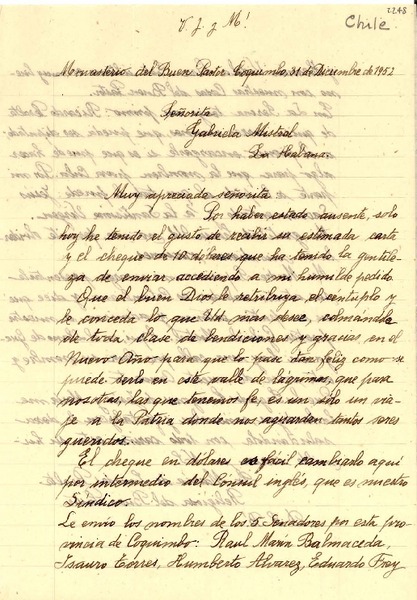 2248
Chile
V. J. y M!
Monasterio del Buen Pastor Coquimbo, 31 de Diciembre de 1952
Señorita
Gabriela Mistral
La Habana.
Muy apreciada señorita
Por haber estado ausente, solo
hoy he tenido el gusto de recibir su estimada carta
y el cheque de 10 dólares que ha tenido la gentile-
za de enviar accediendo a mi humilde pedido.
Que el buen Dios le retribuya el céntuplo y
le conceda lo que Ud. mas desee, colmándola
de toda clase de bendiciones y gracias en el
Nuevo Año para que lo pase tan feliz como se
puede serlo en este valle de lágrimas, que para
nosotras, las que tenemos fe, es un solo un via-
je a la Patria donde nos aguardan tantos seres
queridos.
El cheque en dólares es fácil cambiarlo aquí
por intermedio del Consul inglés, que es nuestro
Síndico.
Le envío los nombres de los 5 Senadores por esta pro-
vincia de Coquimbo: Raul Marín Balmaceda,
Isauro Torres, Humberto Alvarez, Eduardo Frey